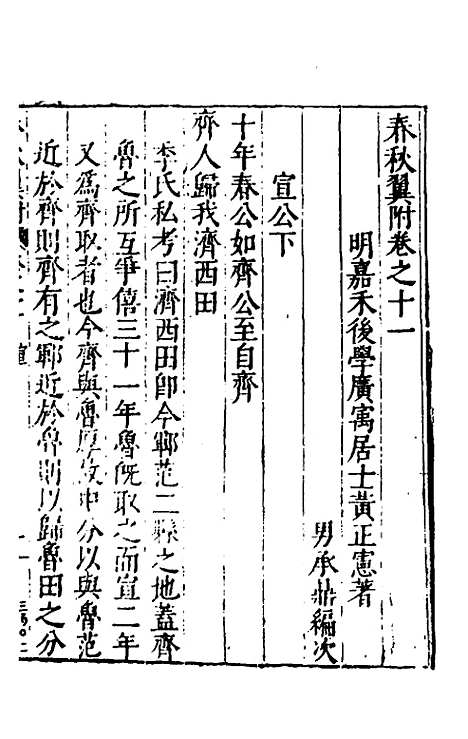 春秋翼附卷之十一
明嘉禾後學廣寓居士黃正憲著
男承鼎編次
宣公下
十年春公如齊公至自齊
齊人歸我濟西田
季氏私考曰濟西田卽今鄆范二縣之地蓋齊
魯之所互爭僖三十一年魯旣取之而宣二年
又爲齊取者也今齊與魯厚故中分以與魯范
近於齊則齊有之鄆近於魯則以歸魯田之分